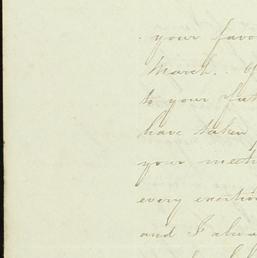 your favo
March.
to your
have taken
your meeti
every exertion
and I alwa